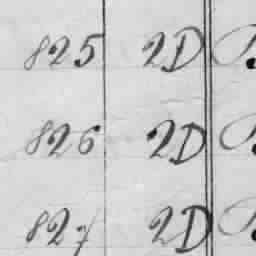 825 2D
826 2D
827 2D